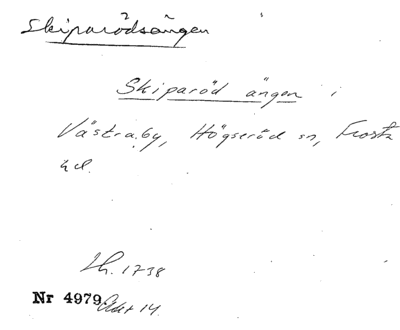 Skiparödsängen
Skiparöd ängen i
Västraby, Högseröd sn, Frosta
hd.
Lh. 1738
Nr 4979 Akt 14